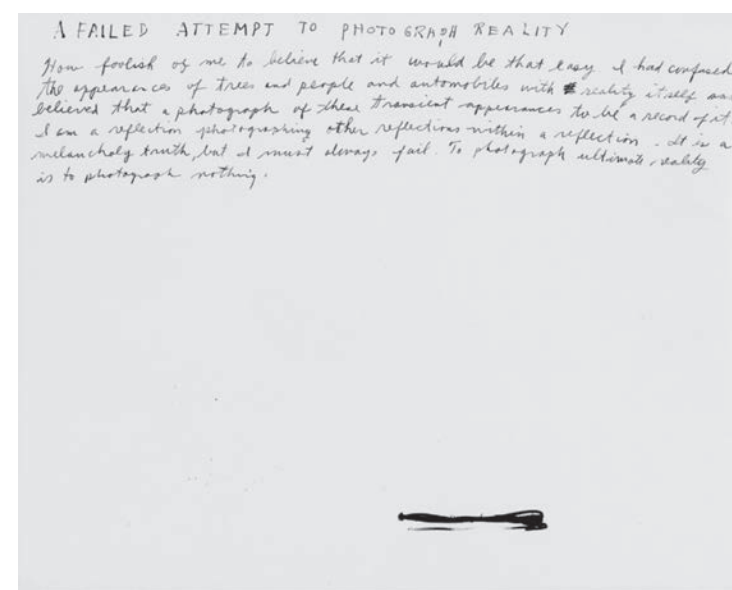 A FAILED ATTEMPT TO PHOTOGRAPH REALITY
How foolish of me to believe that it would be that easy I had confused
the appearances of trees and people and automobiles with reality itself an
believed that a photograph of these transient appearances to be a record of it
I am a reflection photographing other reflections within a reflection. It is a
melancholy truth, but I must always fail. To photograph ultimate reality
is to photograph nothing.